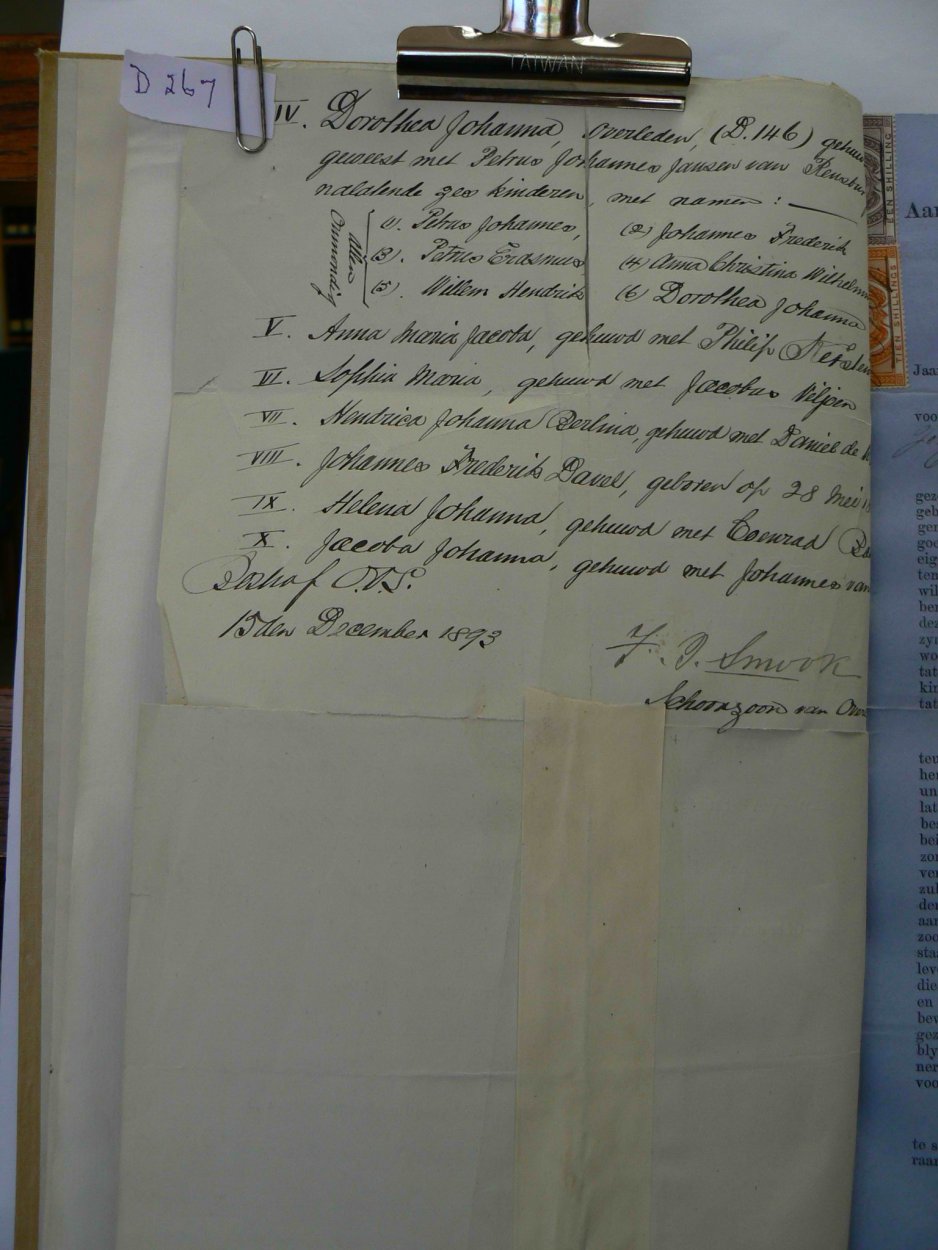 TAIWAN
D 267
IV. Dorothea Johanna, overleden, (D.146) gehuw
geweest met Petrus Johannes Jansen van Rensbur
nalatende zes kinderen, met namen:
Allen Onmondig
(1). Petrus Johannes, (2) Johannes Frederik
(3). Petrus Erasmus, (4) Anna Christina Wilhelmin
(5). Willem Hendrik (6) Dorothea Johanna
V. Anna Maria Jacoba, gehuwd met Philip
VI. Sophia Maria, gehuwd met Jacobus Viljoen
VII. Hendrica Johanna Berlina, gehuwd met Daniel de
VIII. Johannes Frederik Davel, geboren op 28 Mei 1
IX. Helena Johanna, gehuwd met Coenrad
X. Jacoba Johanna, gehuwd met Johannes van
Boshof O.V.S.
15den December 1893
F. D. Smook
Schoonzoon van Over
EEN SHILLING
TIEN SHILLINGS
Aan
Jaar
voo
gez
geb
gen
goe
eig
ten
wil
ber
dez
zyn
wo
tat
kin
tat
teu
her
un
lat
bes
bei
zon
ver
zul
der
aan
zoo
sta
lev
die
en
bev
gez
bly
ner
voo
te s
raan